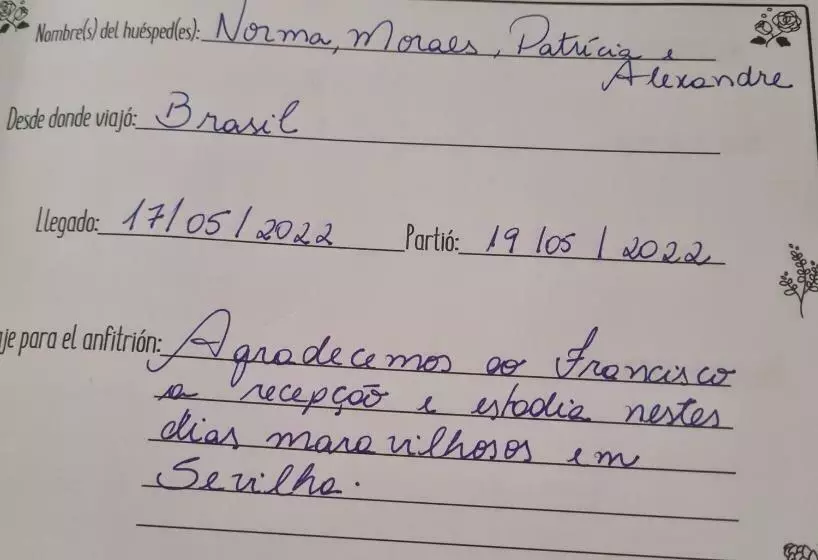 Nombre(s) del huésped(es): Norma, Moraes, Patrícia e
Alexandre
Desde donde viajó: Brasil
Llegado: 17/05/2022 Partió: 19/05/2022
je para el anfitrión: Agradecemos ao Francisco
a recepção e estadia nestes
dias maravilhosos em
Sevilha.